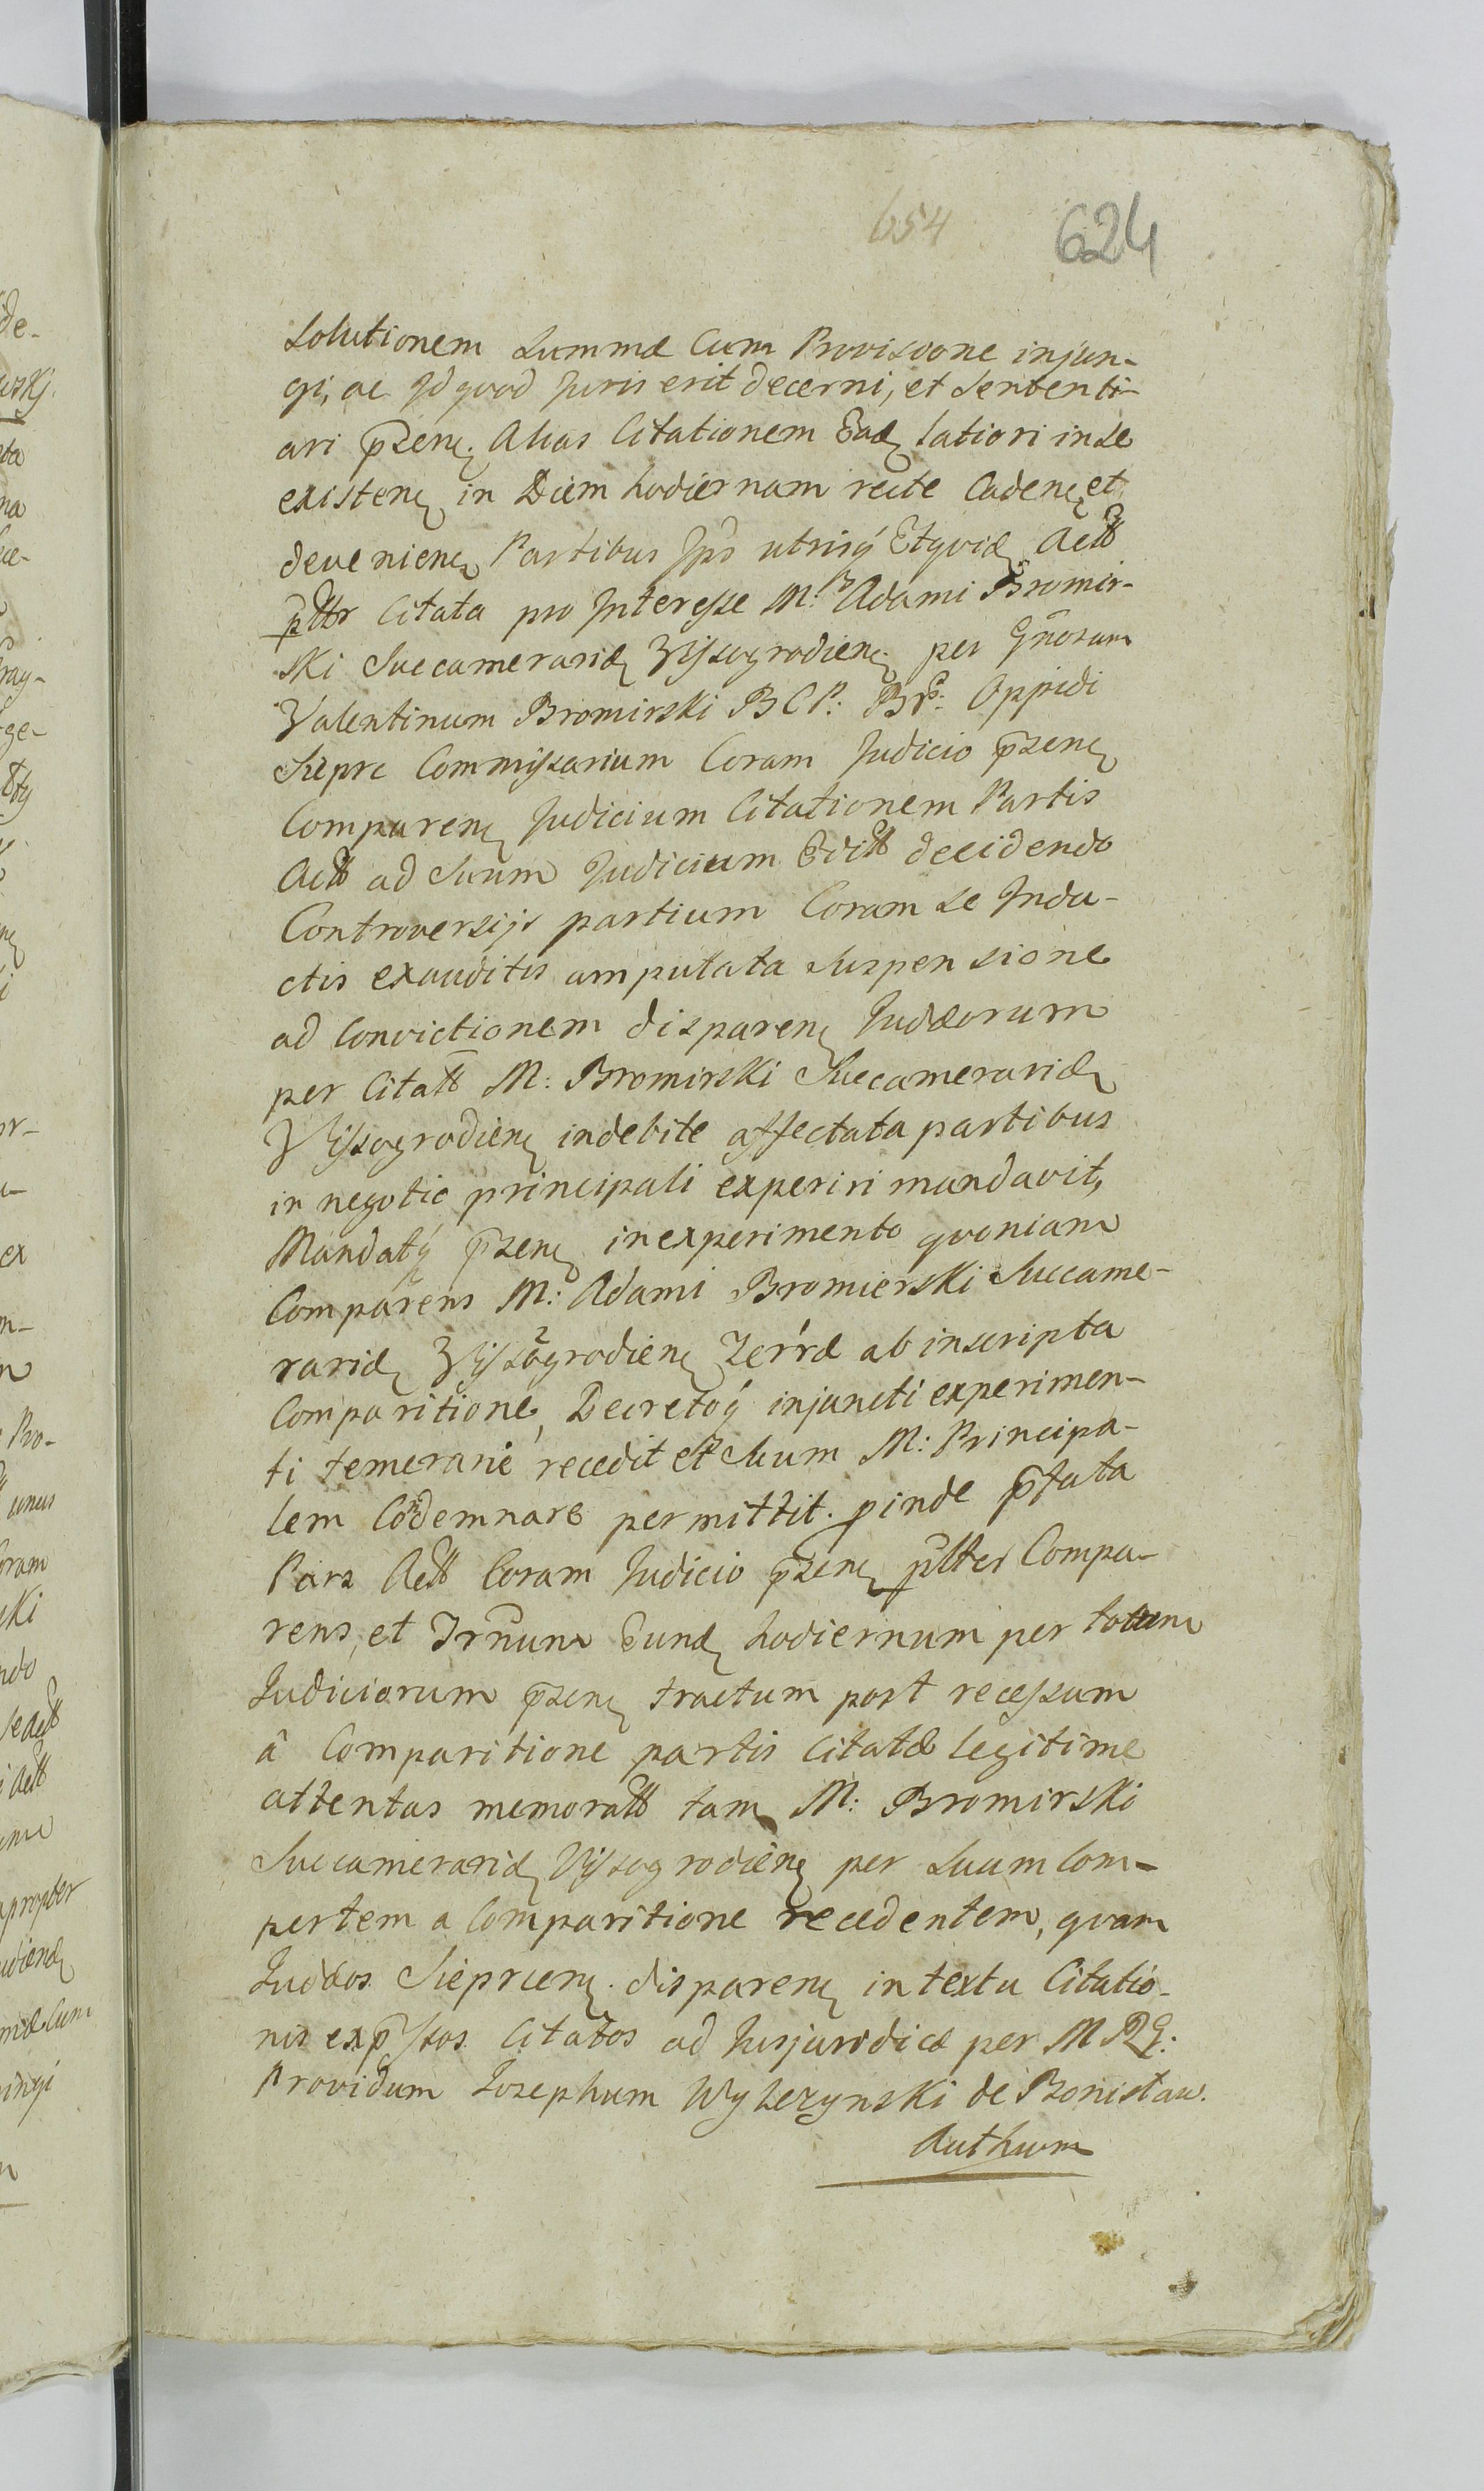 654 624
Solutionem Summæ Cum Provisione injun-
gi, ac Id quod Juris erit decerni, et Sententi-
ari p̄zenę. Alias Citationem Eadę latiori in Se
existenę in Diem hodiernam recte Cadenę et
devenienę Partibus Ips utrisq́ Actt
pttr Citata pro Interesse M: Adami Bromir-
ski Succameraridę Vyszogrodienę per Gn̄osum
Valentinum Bromirski B C P: Br: Oppidi
Sieprc Commissarium Coram Judicio p̄zenę
Comparenę Judicium Citationem Partis
Actt ad Suum Judicium Editt decidendo
Controversijs partium Coram Se Indu-
ctis exauditis amputata Suspensione
ad Convictionem disparenę Judæorum
per Citatt M: Bromirski Succameraridę
Vyszogrodienę indebite affectata partibus
in negotio principali experiri mandavit,
Mandatq́ p̄zenę in experimento quoniam
Comparens M: Adami Bromierski Succame-
raridę Vyszogrodienę Terræ ab inscripta
Comparitione, Decretoq́ injuncti experimen-
ti temerarie recedit et Suum M: Principa-
lem Condemnare permittit. pinde p̄fata
Pars Actt Coram Judicio p̄zenę pltter Compa-
rens, et Trn̄um Eundę hodiernum per totum
Judiciorum p̄zenę tractum post recessum
â Comparitione partis Citatæ legitime
attentas memoratt tam M: Bromirski
Succameraridę Vyszogrodienę per Suum Com-
pertem a Comparitione recedentem, quam
Judæos Sieprcenę. disparenę in textu Citatio-
nis exp̄ssos Citatos ad Jusjuridicæ per M
Providum Josephum Wylezynski de Bonisław.
Authum